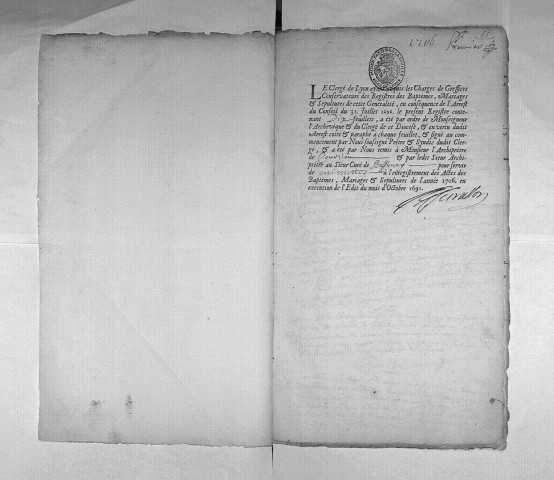 1706
premier
LE Clergé de Lyon ayant acquis les Charges de Greffiers
Conservateurs des Registres des Baptêmes, Mariages
& Sepultures de cette Generalité, en consequence de l'Arrest
du Conseil du 31. Juillet 1692. le present Registre conte-
nant Dix feuillets, a été par ordre de Monseigneur
l'Archevêque & du Clergé de ce Diocese, & en vertu dudit
Arrest cotté & paraphé a chaque feuillet, & signé au com-
mencement par Nous soussigné Prêtre & Syndic dudit Cler-
gé, & a été par Nous remis à Monsieur l'Archiprêtre
de & par ledit Sieur Archi-
prêtre au Sieur Curé de pour servir
de minutte à l'enregistrement des Actes des
Baptêmes, Mariages & Sepultures de l'année 1706. en
execution de l'Edit du mois d'Octobre 1691.